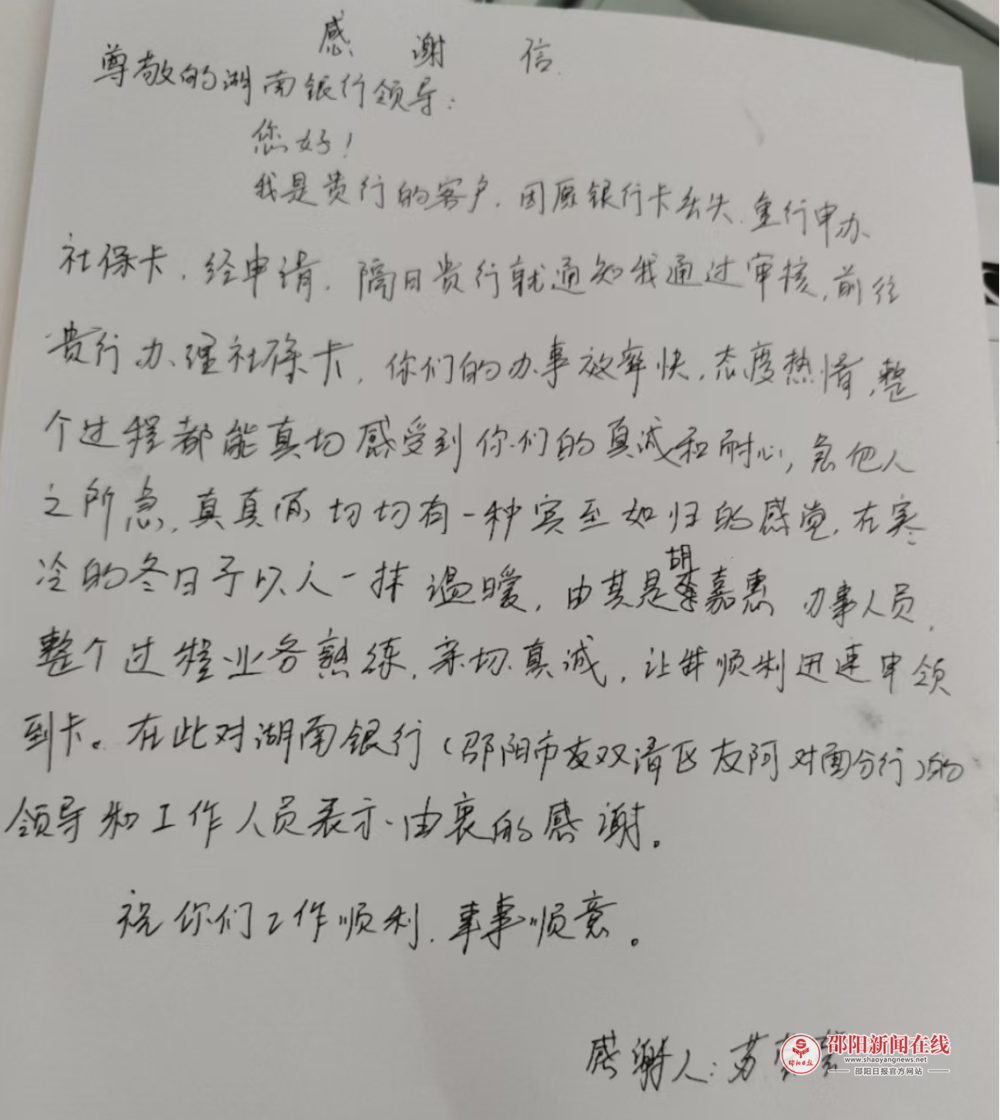 感 谢 信
尊敬的湖南银行领导：
您好！
我是贵行的客户，因原银行卡丢失，重行申办
社保卡，经申请，隔日贵行就通知我通过审核，前往
贵行办理社保卡，你们的办事效率快，态度热情，整
个过程都能真切感受到你们的真诚和耐心，急他人
之所急，真真而切切有一种宾至如归的感觉，在寒
冷的冬日予以人一抹温暖，由其是胡嘉惠 办事人员，
整个过程业务熟练，亲切真诚，让我顺利迅速申领
到卡。在此对湖南银行（邵阳市友双清区友阿对面分行）的
领导和工作人员表示由衷的感谢。
祝你们工作顺利，事事顺意。
感谢人：苏
邵阳新闻在线
www.shaoyangnews.net
邵阳日报官方网站
邵阳日报